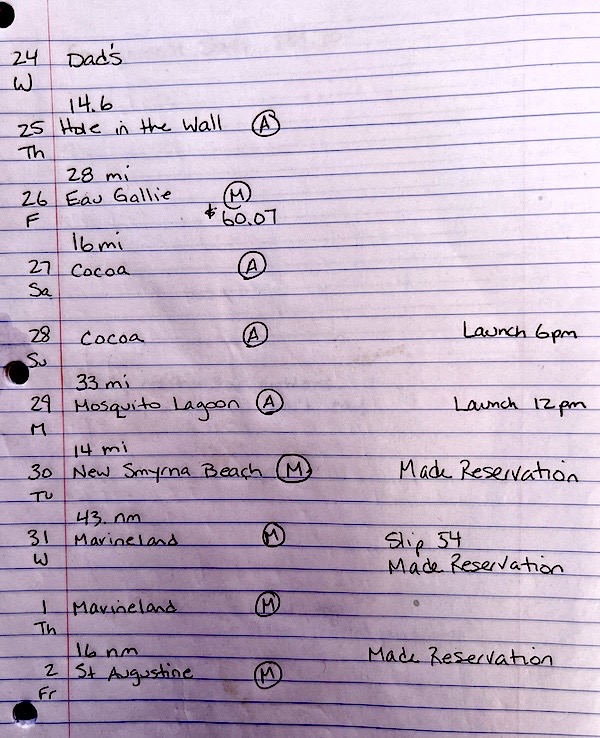 24 Dad's
W
14.6
25 Hole in the Wall A
Th
28 mi
26 Eau Gallie M
F $60.07
16 mi
27 Cocoa A
Sa
28 Cocoa A Launch 6pm
Su
33 mi
29 Mosquito Lagoon A Launch 12pm
M
14 mi
30 New Smyrna Beach M Made Reservation
Tu
43. nm
31 Marineland M Slip 54
W Made Reservation
1 Marineland M
Th
16 nm Made Reservation
2 St Augustine M
Fr